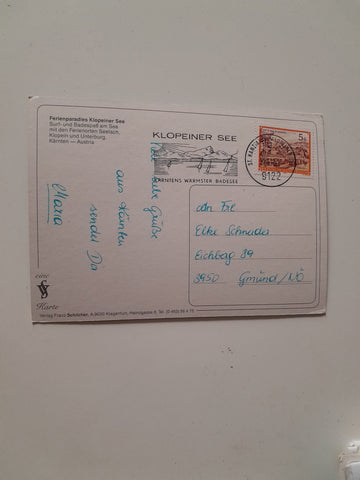 Ferienparadies Klopeiner See
Surf- und Badespaß am See
mit den Ferienorten Seelach,
Klopein und Unterburg,
Kärnten — Austria
KLOPEINER SEE
KÄRNTENS WÄRMSTER BADESEE
5 S
ST. KANZIAN
9122
liebe Grüße
aus Kärnten
sendet Dir
Maria
An Frl
Elke Schnader
Eichbag 89
3950 Gmünd/NÖ
eine
Karte
Verlag Franz Schilcher, A-9020 Klagenfurt,